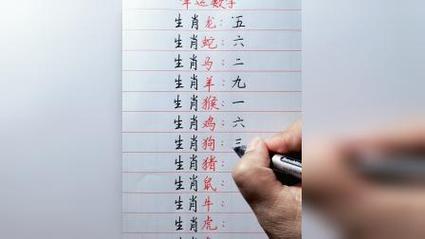 幸运数字
生肖龙:五
生肖蛇:六
生肖马:二
生肖羊:九
生肖猴:一
生肖鸡:六
生肖狗:三
生肖猪:
生肖鼠:
生肖牛:
生肖虎: